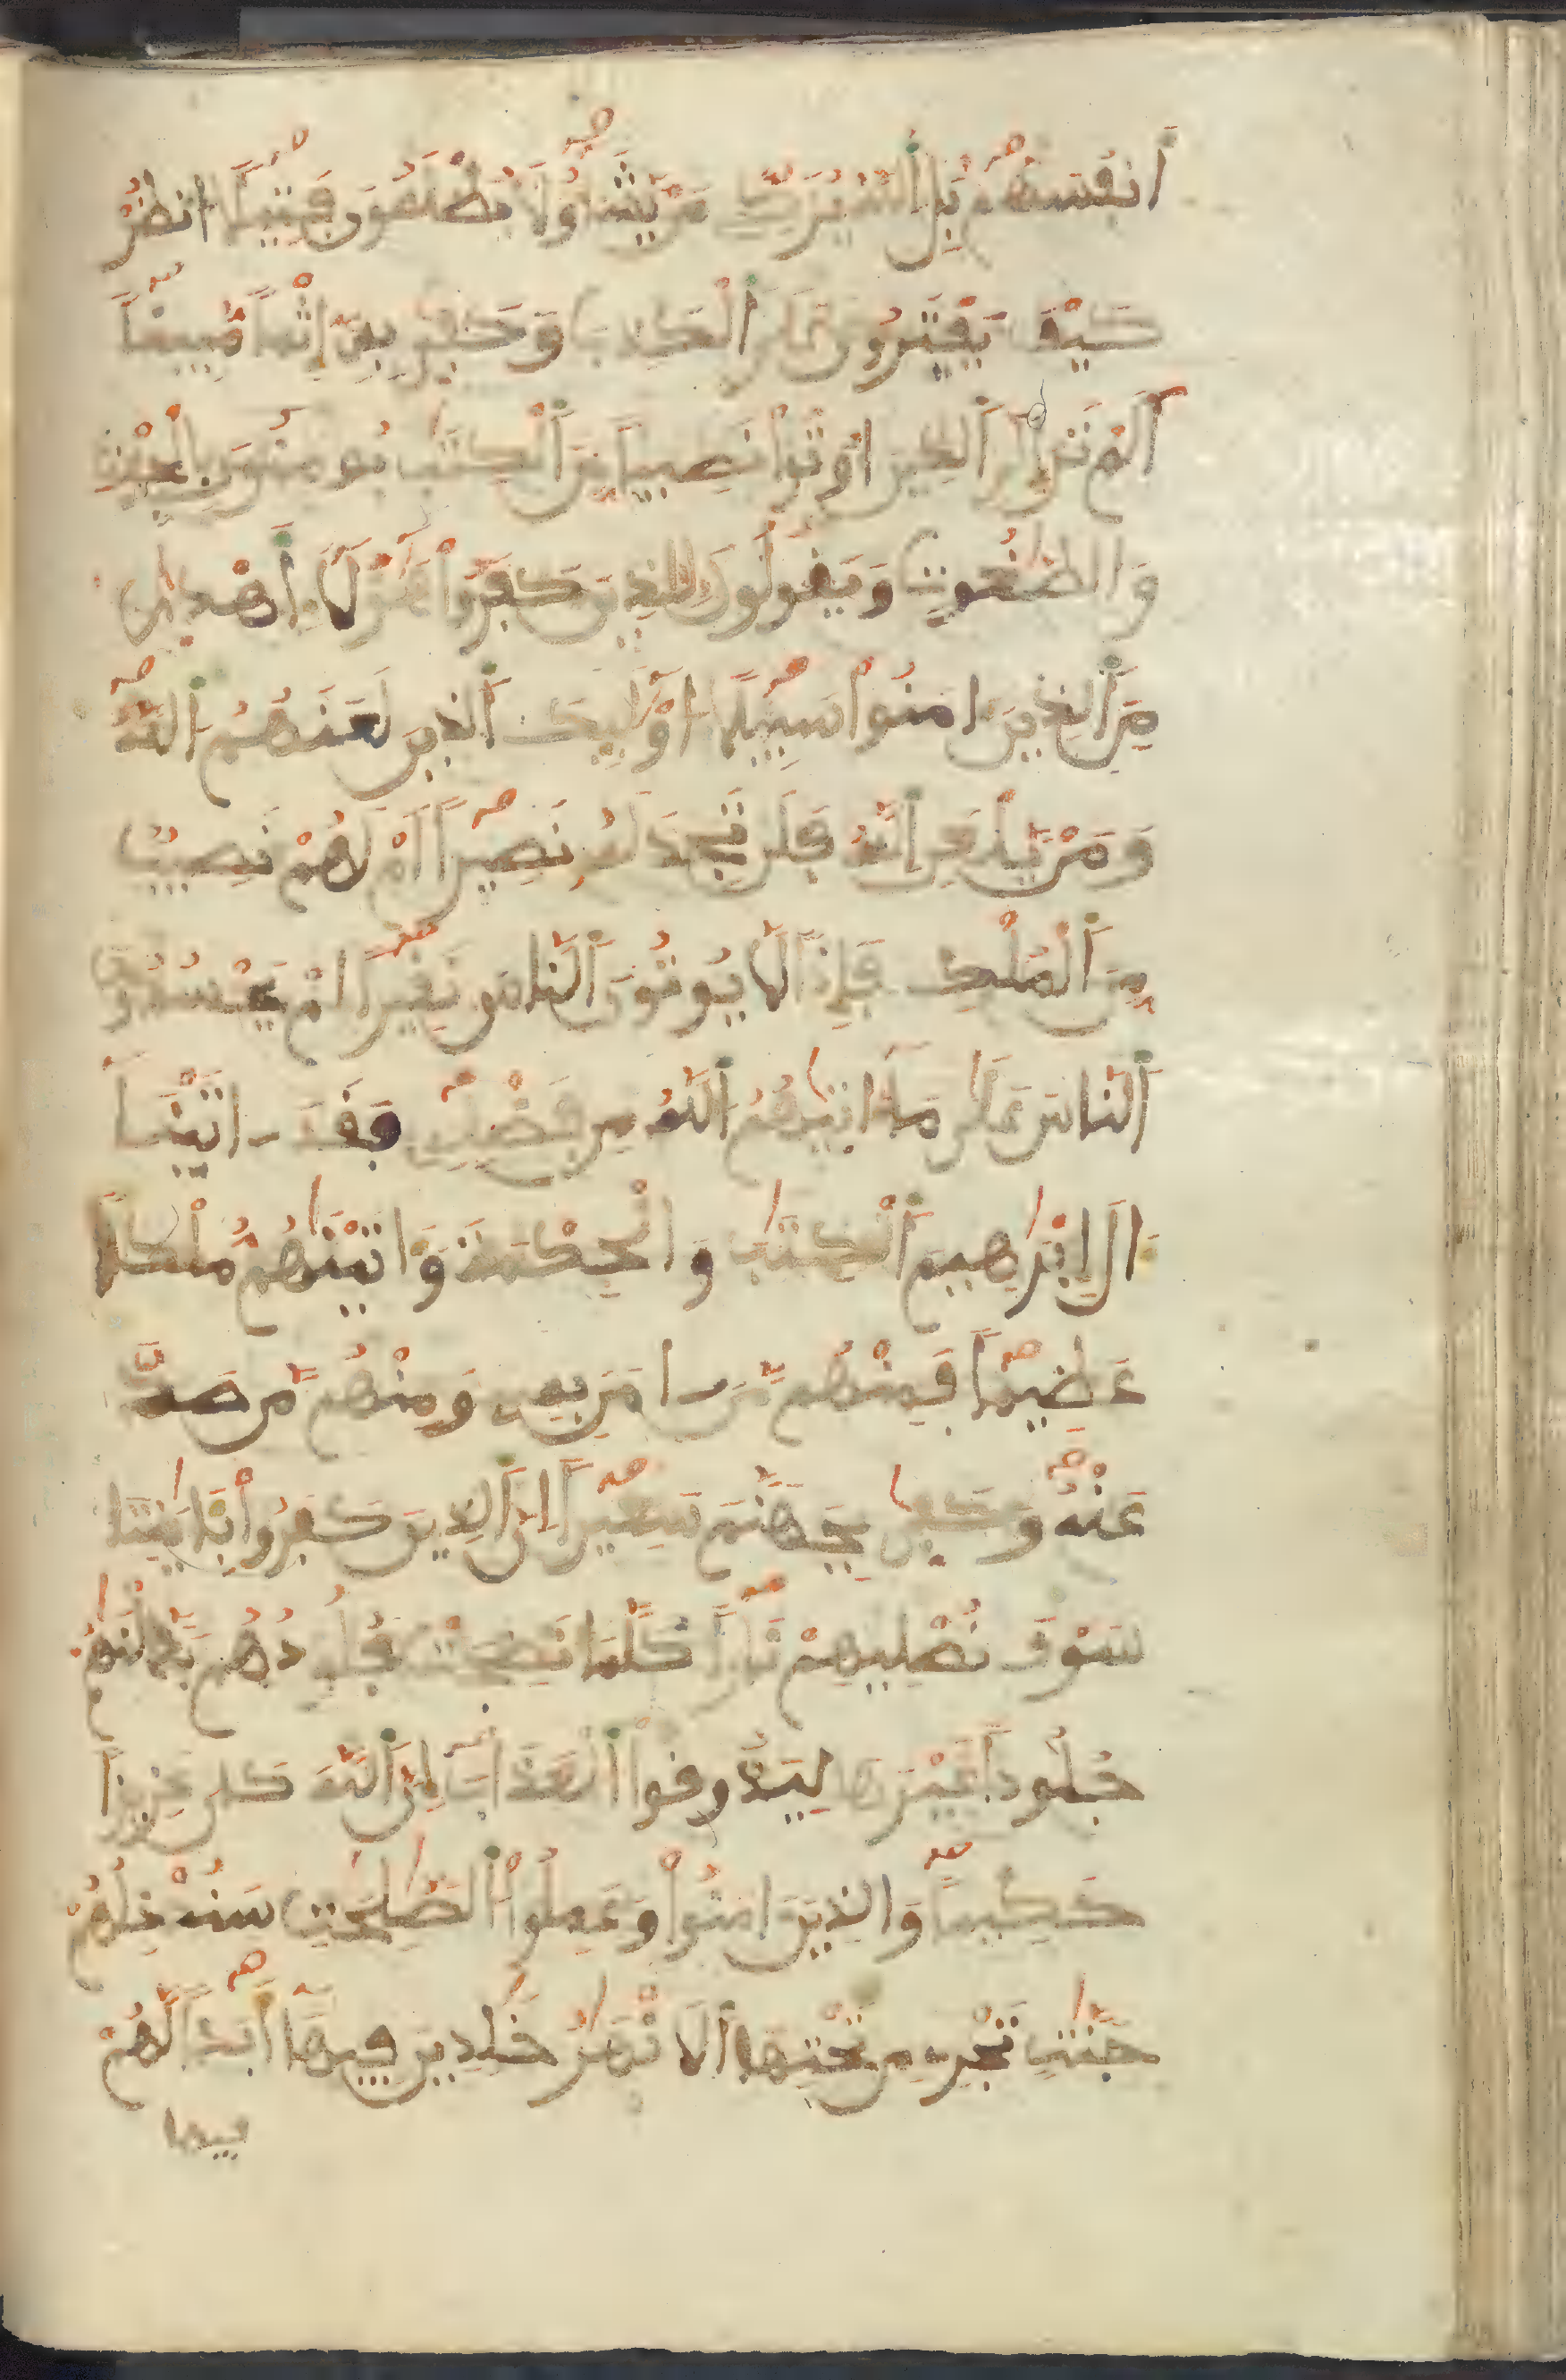 أَنفُسَهُم بَلِ اللَّهُ يُزَكِّي مَنْ يَّشَآءُ وَلَا يُظْلَمُونَ فَتِيلًا انظُرْ
كَيْفَ يَفْتَرُونَ عَلَى اَللَّهِ اِلْكَذِبَ وَكَفَىٰ بِهِ إِثْمًا مُّبِينًا
أَلَمْ تَرَ إِلَى اَلذِينَ أُوتُوا نَصِيبًا مِّنَ اَلْكِتَٰبِ يُومِنُونَ بِالْجِبْتِ
وَالطَّٰغُوتِ وَيَقُولُونَ لِلذِينَ كَفَرُوا هَٰؤُلَاءِ أَهْدَىٰ
مِنَ اَلذِينَ ءَامَنُوا سَبِيلًا أُوْلَٰئِكَ اَلذِينَ لَعَنَهُمُ اُللَّهُ
وَمَنْ يَّلْعَنِ اِللَّهُ فَلَن تَجِدَ لَهُ نَصِيرًا أَمْ لَهُمْ نَصِيبٌ
مِّنَ اَلْمُلْكِ فَإِذًا لَّا يُوتُونَ اَلنَّاسَ نَقِيرًا أَمْ يَحْسُدُونَ
اَلنَّاسَ عَلَىٰ مَا ءَاتَىٰهُمُ اُللَّهُ مِن فَضْلِهِ فَقَدَ ـ اتَيْنَا
ءَالَ إِبْرَٰهِيمَ اَلْكِتَٰبَ وَالْحِكْمَةَ وَءَاتَيْنَٰهُم مُّلْكًا
عَظِيمًا فَمِنْهُم مَّنَ ـ امَنَ بِهِ وَمِنْهُم مَّن صَدَّ
عَنْهُ وَكَفَىٰ بِجَهَنَّمَ سَعِيرًا إِنَّ اَلذِينَ كَفَرُوا بِـَٔايَٰتِنَا
سَوْفَ نُصْلِيهِمْ نَارًا كُلَّمَا نَضِجَتْ جُلُودُهُم بَدَّلْنَٰهُمْ
جُلُودًا غَيْرَهَا لِيَذُوقُوا اُلْعَذَابَ إِنَّ اَللَّهَ كَانَ عَزِيزًا
حَكِيمًا وَالذِينَ ءَامَنُوا وَعَمِلُوا اُلصَّٰلِحَٰتِ سَنُدْخِلُهُمْ
جَنَّٰتٍ تَجْرِي مِن تَحْتِهَا اَلَانْهَٰرُ خَٰلِدِينَ فِيهَا أَبَدًا لَّهُمْ
فيها